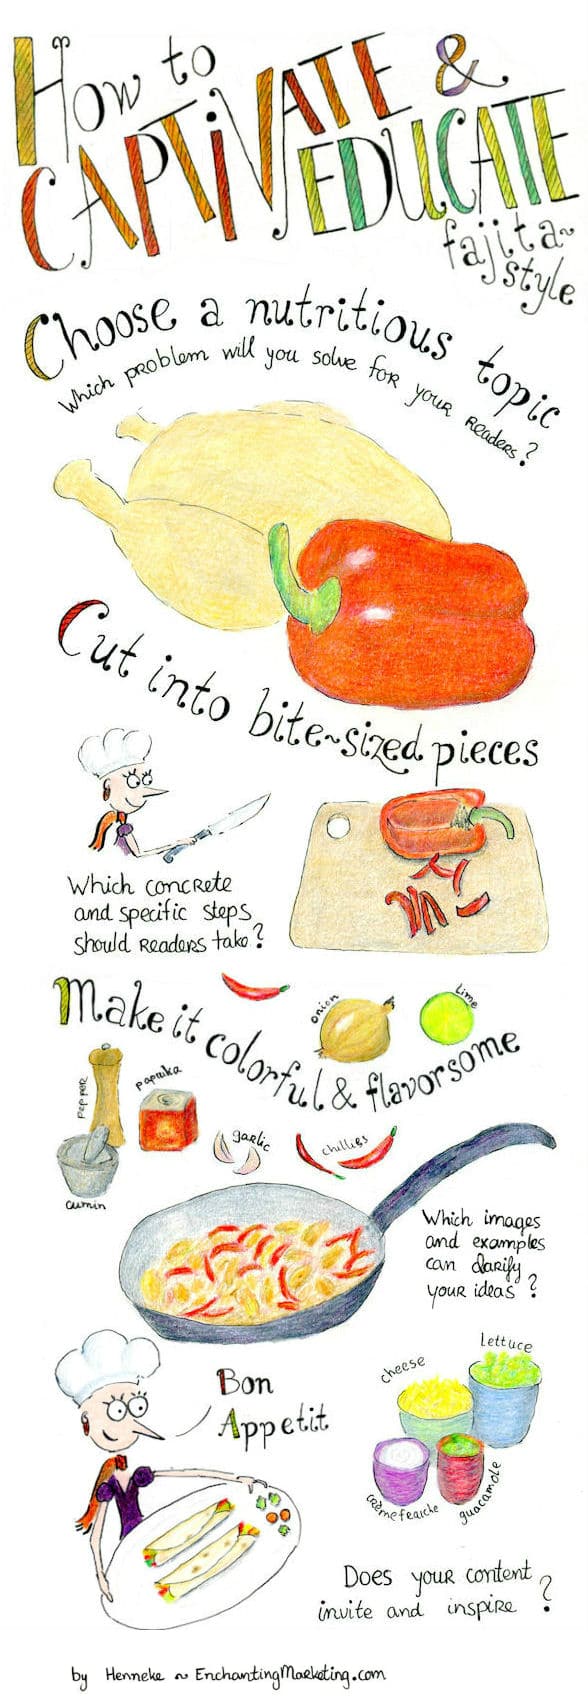 How to
CAPTiVATE &
EDUCATE
fajita~
style
Choose a nutritious topic
Which problem will you solve for your Readers?
Cut into bite~sized pieces
Which concrete
and specific steps
should Readers take?
Make it colorful & flavorsome
onion
lime
Pepper
Paprika
garlic
chillies
cumin
Which images
and examples
can clarify
your ideas?
Bon
Appetit
cheese
Lettuce
crème fraiche
guacamole
Does your content
invite and inspire?
by Henneke ~ EnchantingMarketing.com